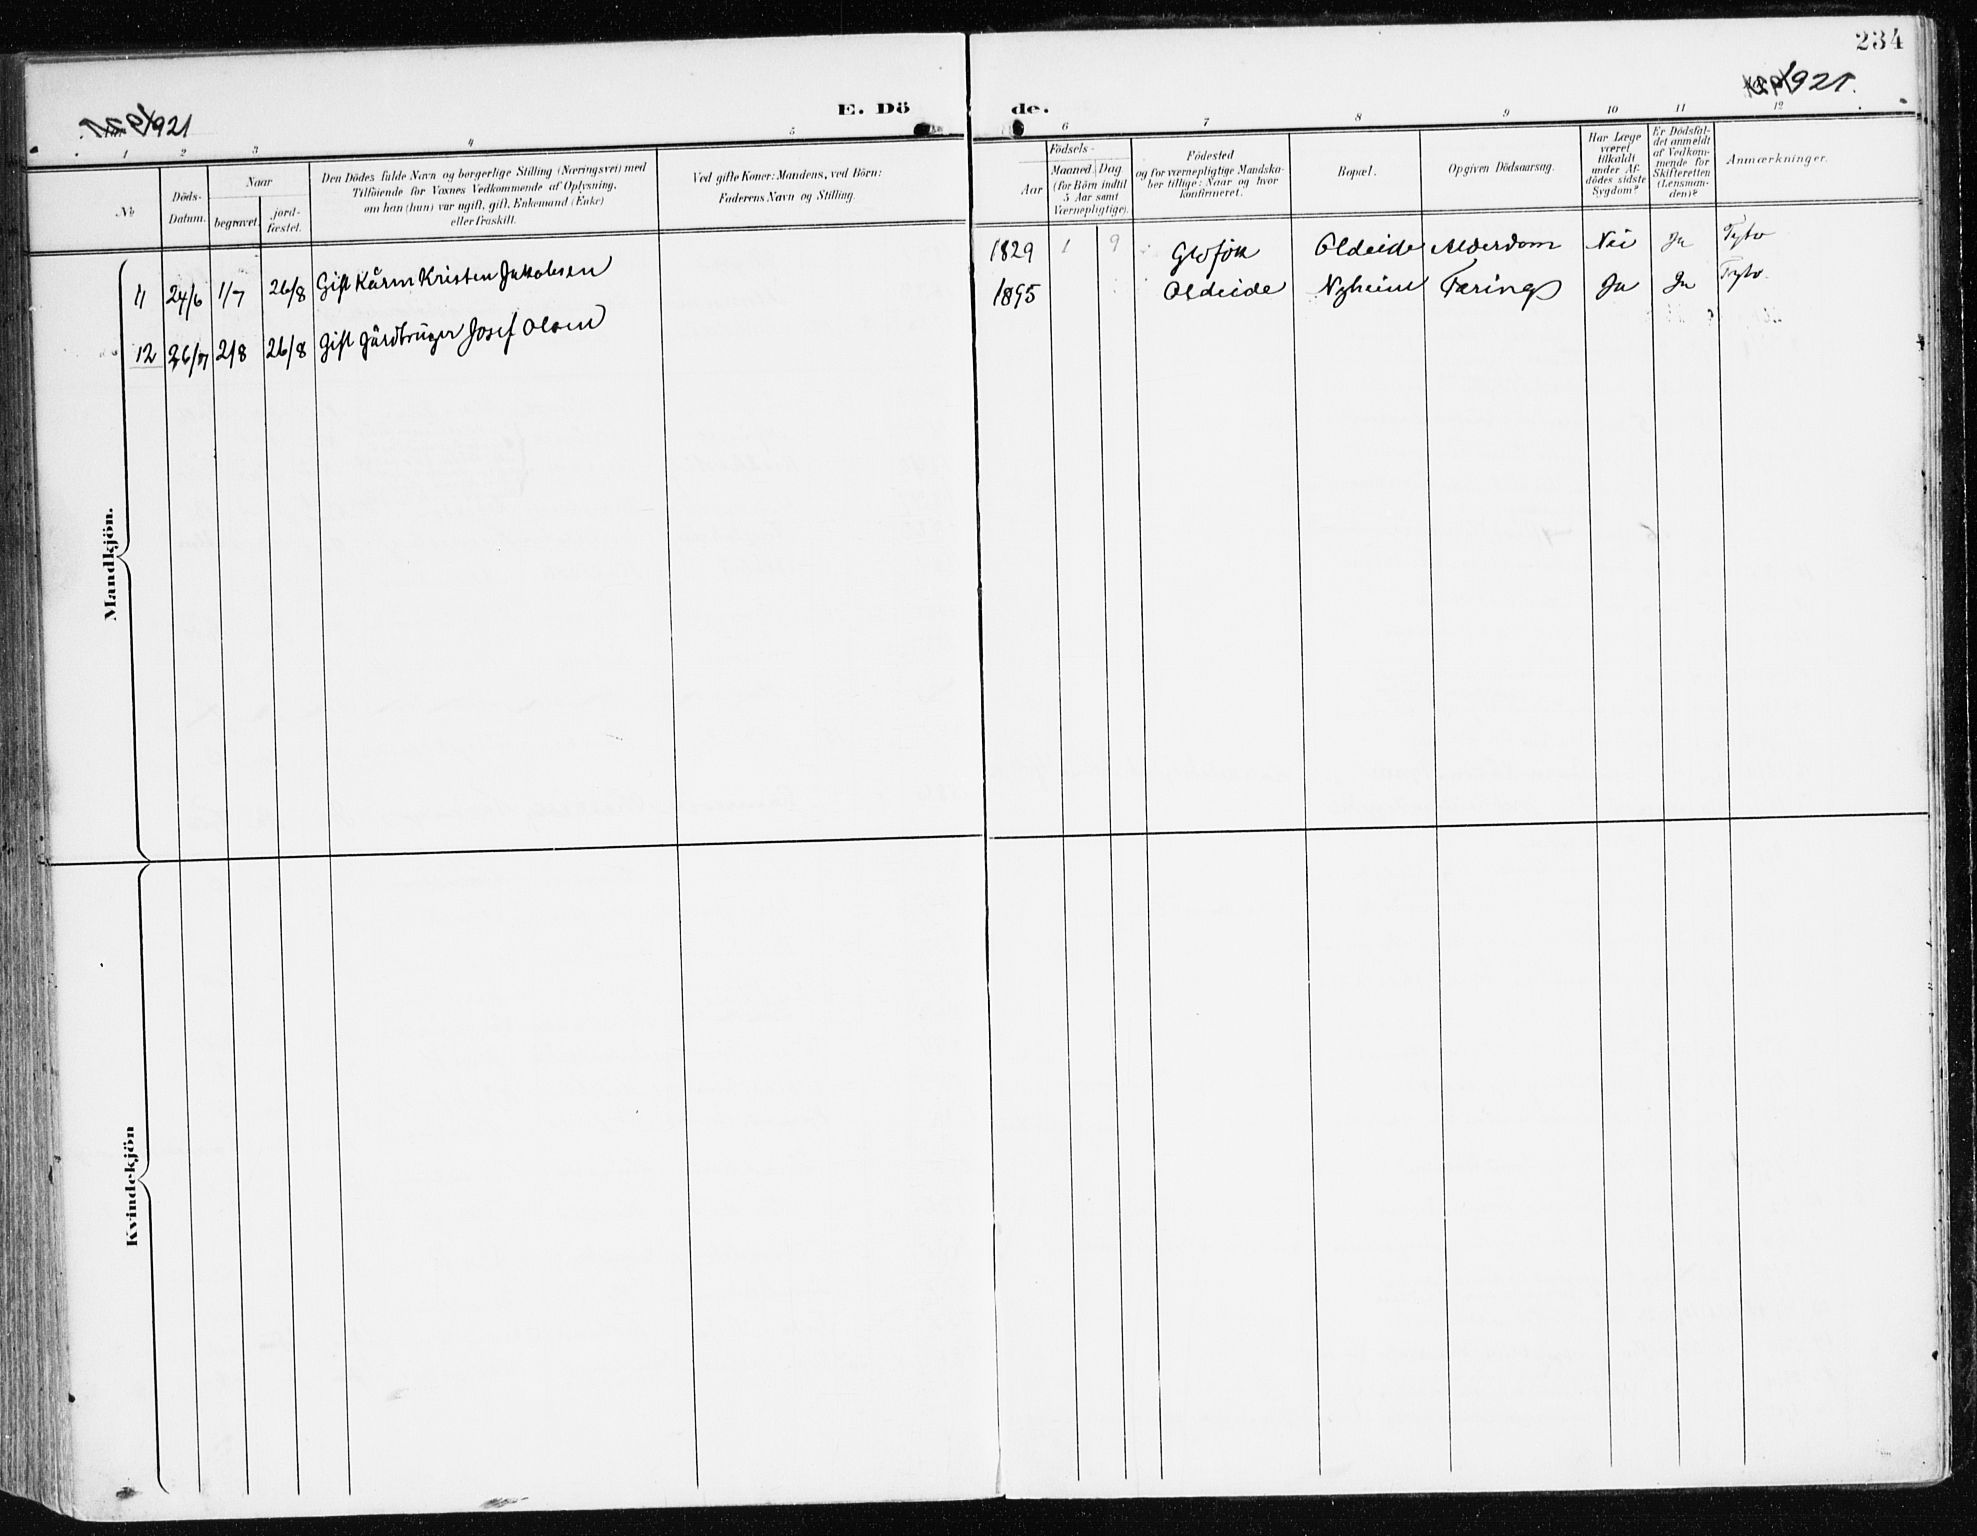 234
1921
E. Dö
de.
1921.
1 2 3 4 5
6 7 8 9 10 11 12
No
Döds-
Datum.
Naar
begravet.
jord-
fæstet.
Den Dödes fulde Navn og borgerlige Stilling (Næringsvei) med
Tilföiende for Voxnes Vedkommende af Oplysning,
om han (hun) var ugift, gift, Enkemand (Enke)
eller fraskilt.
Ved gifte Koner: Mandens, ved Börn:
Faderens Navn og Stilling.
Födsels-
Aar
Maaned.
Dag
(for Börn indtil
5 Aar samt
Værnepligtige).
Födested
og for værnepligtige Mandska-
ber tillige: Naar og hvor
konfirmeret.
Bopæl.
Opgiven Dödsaarsag.
Har Læge
været
tilkaldt
under Af-
dödes sidste
Sygdom?
Er Dödsfal-
det anmeldt
af Vedkom-
mende for
Skifteretten
(Lensman-
den)?
Anmærkninger.
11 24/6 1/7 26/8 Gift Kårm Kristen Jakobsen 1829 1 9 Oldeide Alderdom Nei Ja
12 26/7 2/8 26/8 Gift Gårdbruger Josef Olsen 1895 Oldeide Nyheim Tæring Ja Ja
Mandkjön.
Kvindekjön